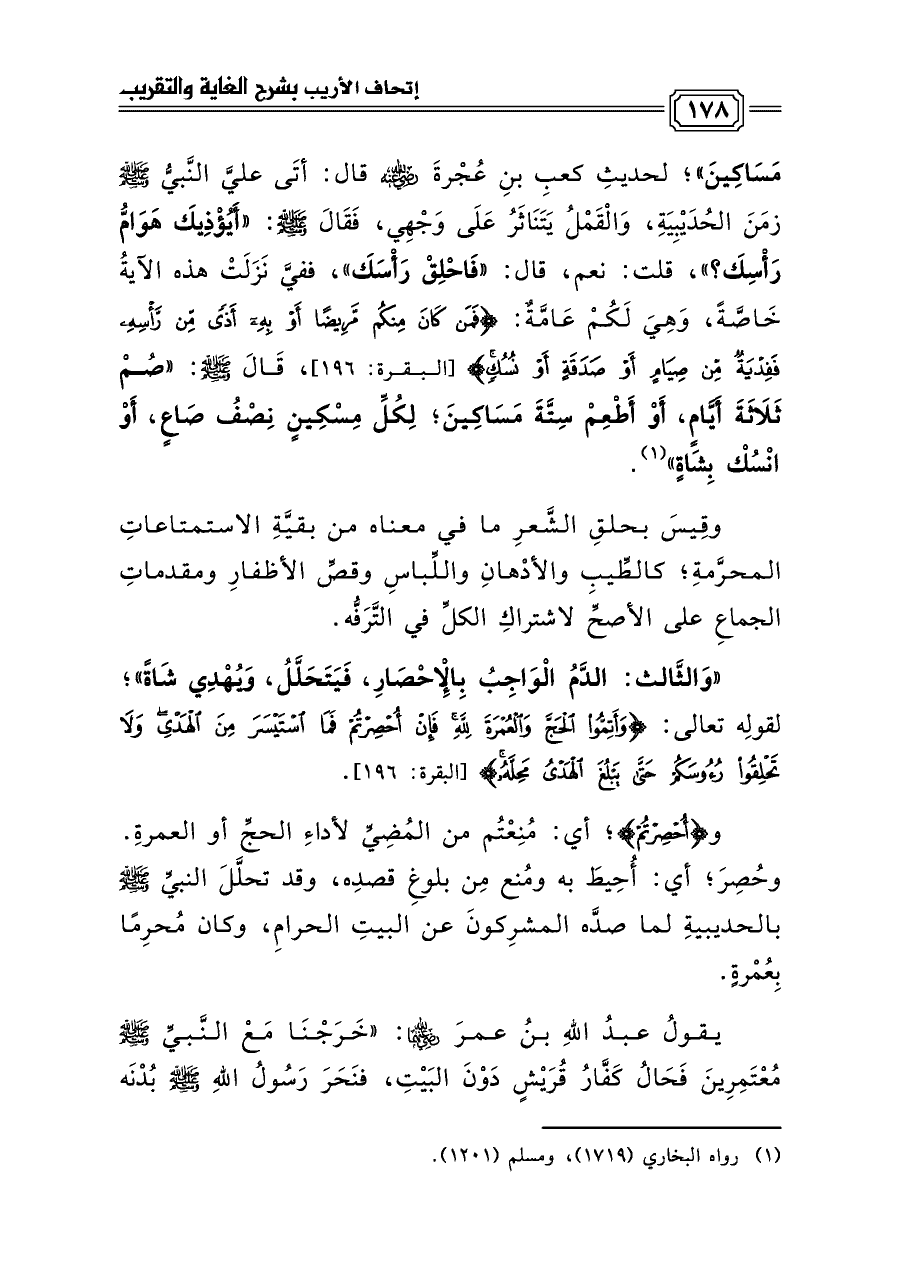 إتحاف الأريب بشرح الغاية والتقريب
١٧٨
مَسَاكِينَ»؛ لحديثِ كعبِ بنِ عُجْرةَ رضي الله عنه قال: أتَى عليَّ النَّبيُّ ﷺ
زمَنَ الحُدَيْبِيَةِ، وَالْقَمْلُ يَتَنَاثَرُ عَلَى وَجْهِي، فَقَالَ ﷺ: «أَيُؤْذِيكَ هَوَامُّ
رَأْسِكَ؟»، قلت: نعم، قال: «فَاحْلِقْ رَأْسَكَ»، ففيَّ نَزَلَتْ هذه الآيةُ
خَاصَّةً، وَهِيَ لَكُمْ عَامَّةٌ: ﴿فَمَن كَانَ مِنكُم مَّرِيضًا أَوْ بِهِۦٓ أَذًى مِّن رَّأْسِهِۦ
فَفِدْيَةٌ مِّن صِيَامٍ أَوْ صَدَقَةٍ أَوْ نُسُكٍۚ﴾ [البقرة: ١٩٦]، قَالَ ﷺ: «صُمْ
ثَلَاثَةَ أَيَّامٍ، أَوْ أَطْعِمْ سِتَّةَ مَسَاكِينَ؛ لِكُلِّ مِسْكِينٍ نِصْفُ صَاعٍ، أَوْ
انْسُكْ بِشَاةٍ»(١).
وقِيسَ بحلقِ الشَّعرِ ما في معناه من بقيَّةِ الاستمتاعاتِ
المحرَّمةِ؛ كالطِّيبِ والأدْهانِ واللِّباسِ وقصِّ الأظفارِ ومقدماتِ
الجماعِ على الأصحِّ لاشتراكِ الكلِّ في التَّرَفُّه.
«وَالثَّالث: الدَّمُ الْوَاجِبُ بِالْإِحْصَارِ، فَيَتَحَلَّلُ، وَيُهْدِي شَاةً»؛
لقولِه تعالى: ﴿وَأَتِمُّوا۟ ٱلْحَجَّ وَٱلْعُمْرَةَ لِلَّهِۚ فَإِنْ أُحْصِرْتُمْ فَمَا ٱسْتَيْسَرَ مِنَ ٱلْهَدْىِۖ وَلَا
تَحْلِقُوا۟ رُءُوسَكُمْ حَتَّىٰ يَبْلُغَ ٱلْهَدْىُ مَحِلَّهُۥۚ﴾ [البقرة: ١٩٦].
و﴿أُحْصِرْتُمْ﴾؛ أي: مُنِعْتُم من المُضِيِّ لأداءِ الحجِّ أو العمرةِ.
وحُصِرَ؛ أي: أُحِيطَ به ومُنع مِن بلوغِ قصدِه، وقد تحلَّلَ النبيِّ ﷺ
بالحديبيةِ لما صدَّه المشركونَ عن البيتِ الحرامِ، وكان مُحرِمًا
بِعُمْرةٍ.
يقولُ عبدُ اللهِ بنُ عمرَ رضي الله عنهما: «خَرَجْنَا مَعْ النَّبيِّ ﷺ
مُعْتَمِرِينَ فَحَالُ كَفَّارُ قُرَيْشٍ دَوْنَ البَيْتِ، فنَحَرَ رَسُولُ اللهِ ﷺ بُدْنَه
(١) رواه البخاري (١٧١٩)، ومسلم (١٢٠١).